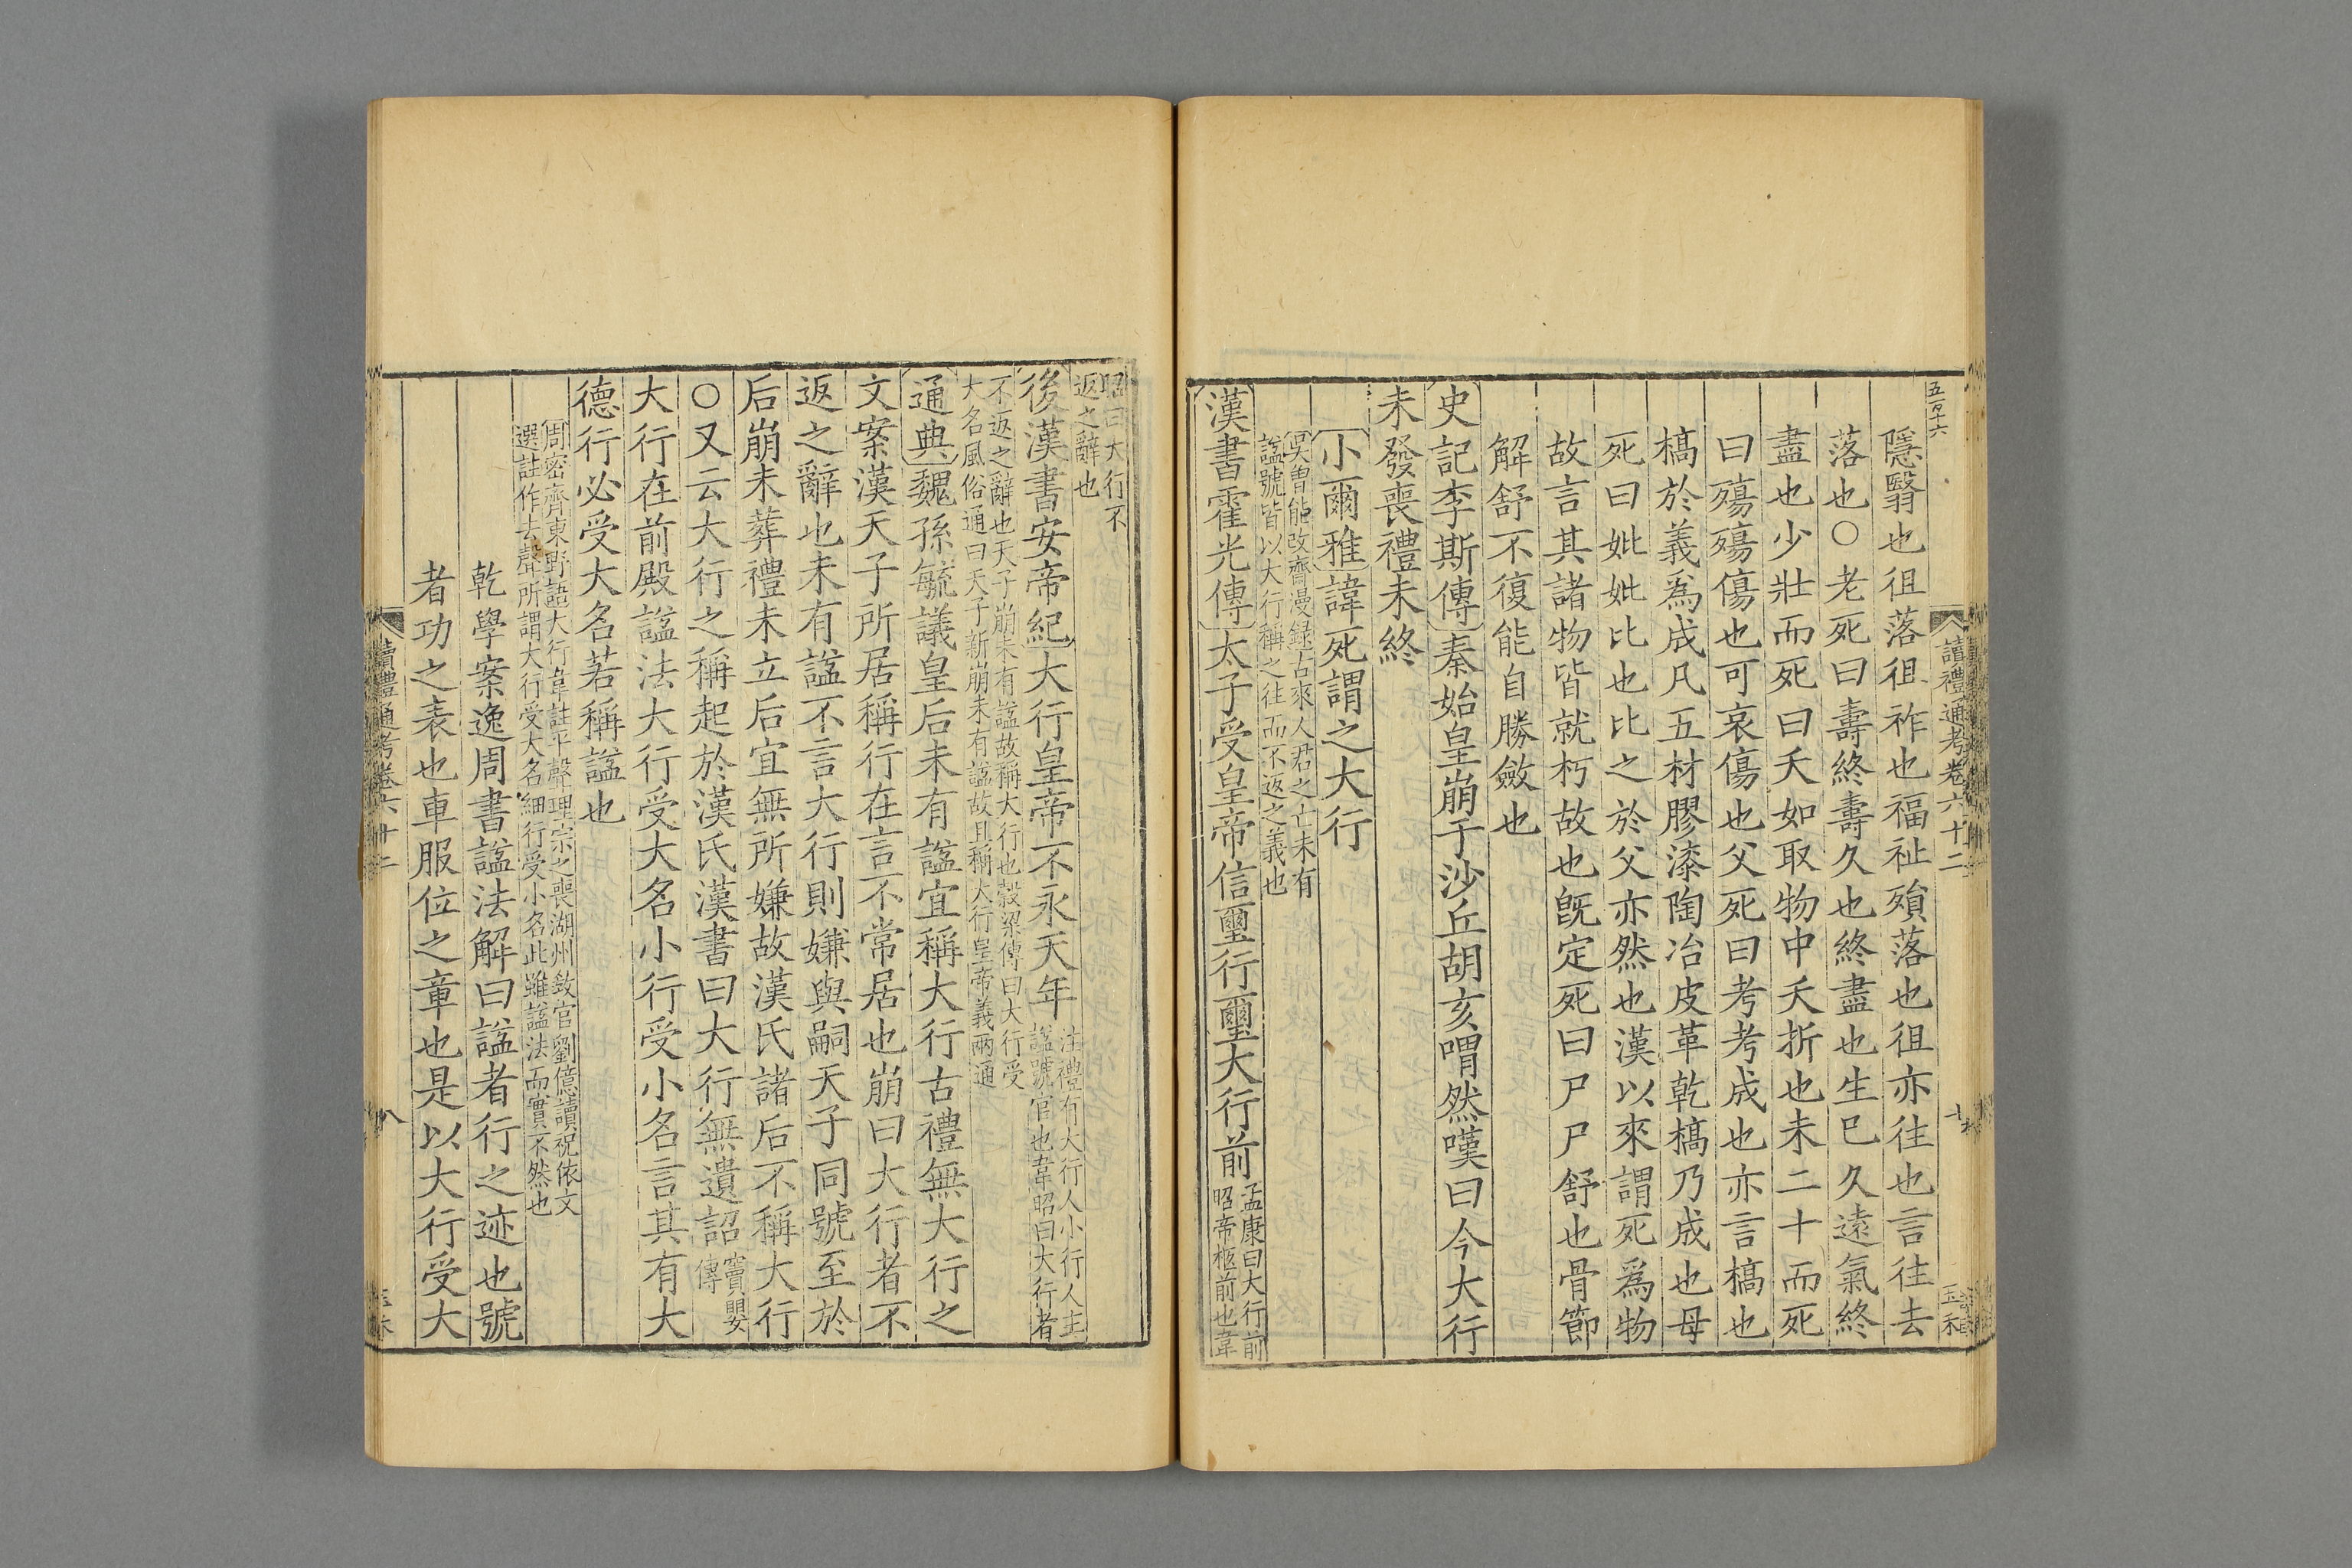 五百十六
隱翳也徂落徂祚也福祉殞落也徂亦往也言往去
落也○老死曰壽終壽久也終盡也生巳久遠氣終
盡也少壯而死曰夭如取物中夭折也未二十而死
曰殤殤傷也可哀傷也父死曰考考成也亦言槁也
槁於義爲成凡五材膠漆陶冶皮革乾槁乃成也母
死曰妣妣比也比之於父亦然也漢以來謂死爲物
故言其諸物皆就朽故也旣定死曰尸尸舒也骨節
解舒不復能自勝斂也
史記李斯傳秦始皇崩于沙丘胡亥喟然嘆曰今大行
未發喪禮未終
小爾雅諱死謂之大行
吳曾能改齋漫録古來人君之亡未有
諡號皆以大行稱之往而不返之義也
漢書霍光傳太子受皇帝信璽行璽大行前
孟康曰大行前
昭帝柩前也韋
讀禮通考卷六十二
昭曰大行不
返之辭也
後漢書安帝紀大行皇帝不永天年
注禮有大行人小行人主
諡號官也韋昭曰大行者
不返之辭也天子崩未有諡故稱大行也穀梁傳曰大行受
大名風俗通曰天子新崩未有諡故且稱大行皇帝義兩通
通典魏孫毓議皇后未有諡宜稱大行古禮無大行之
文案漢天子所居稱行在言不常居也崩曰大行者不
返之辭也未有諡不言大行則嫌與嗣天子同號至於
后崩未葬禮未立后宜無所嫌故漢氏諸后不稱大行
○又云大行之稱起於漢氏漢書曰大行無遺詔
竇嬰
傳
大行在前殿諡法大行受大名小行受小名言其有大
德行必受大名若稱諡也
周密齊東野語大行韋註平聲理宗之喪湖州敎官劉億讀祝依文
選註作去聲所謂大行受大名細行受小名此雖諡法而實不然也
乾學案逸周書諡法解曰諡者行之迹也號
者功之表也車服位之章也是以大行受大
讀禮通考卷六十二
八